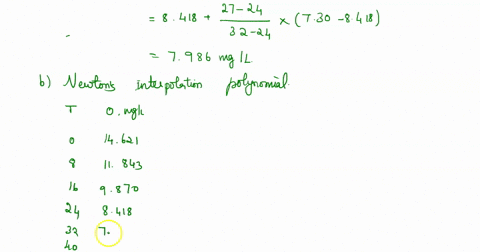 = 8.418 + 27-24 / 32-24 × (7.30 - 8.418)
= 7.986 mg/L
b) Newton's interpolation polynomial.
T O, mg/L
0 14.621
8 11.843
16 9.870
24 8.418
32 7.
40